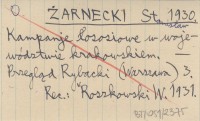 ŻARNECKI Stanisław 1930.
Kampanje łososiowe w woje-
wództwie krakowskiem. —
Przegląd Rybacki (Warszawa) 3.
Rec.: Roszkowski W. 1931.